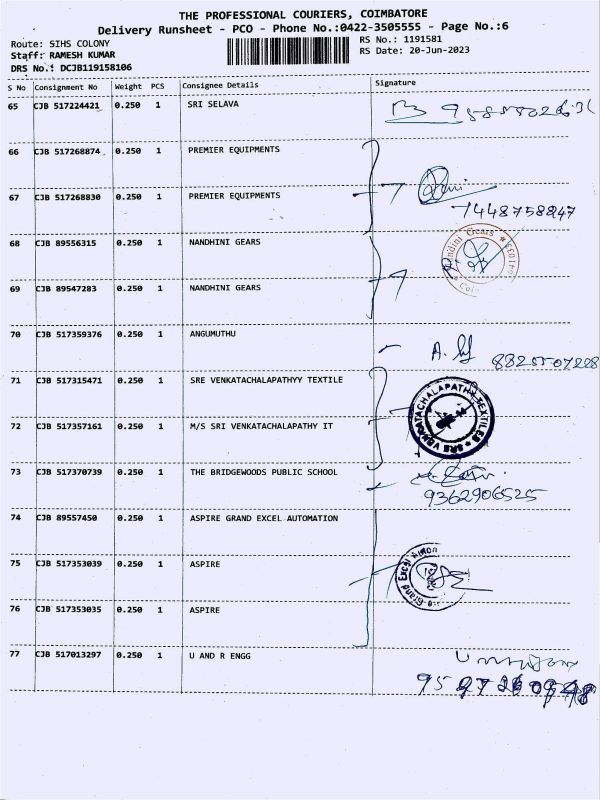 THE PROFESSIONAL COURIERS, COIMBATORE
Delivery Runsheet - PCO - Phone No.:0422-3505555 - Page No.:6
Route: SIHS COLONY RS No.: 1191581
Staff: RAMESH KUMAR RS Date: 20-Jun-2023
DRS No.: DCJB119158106
S No Consignment No Weight PCS Consignee Details Signature
65 CJB 517224421 0.250 1 SRI SELAVA
66 CJB 517268874 0.250 1 PREMIER EQUIPMENTS
67 CJB 517268830 0.250 1 PREMIER EQUIPMENTS
7448758847
68 CJB 89556315 0.250 1 NANDHINI GEARS
69 CJB 89547283 0.250 1 NANDHINI GEARS
70 CJB 517359376 0.250 1 ANGUMUTHU
71 CJB 517315471 0.250 1 SRE VENKATACHALAPATHYY TEXTILE
SRE VENKATACHALAPATHY TEXTILES
72 CJB 517357161 0.250 1 M/S SRI VENKATACHALAPATHY IT
73 CJB 517370739 0.250 1 THE BRIDGEWOODS PUBLIC SCHOOL
9362906525
74 CJB 89557450 0.250 1 ASPIRE GRAND EXCEL AUTOMATION
75 CJB 517353039 0.250 1 ASPIRE
76 CJB 517353035 0.250 1 ASPIRE
77 CJB 517013297 0.250 1 U AND R ENGG